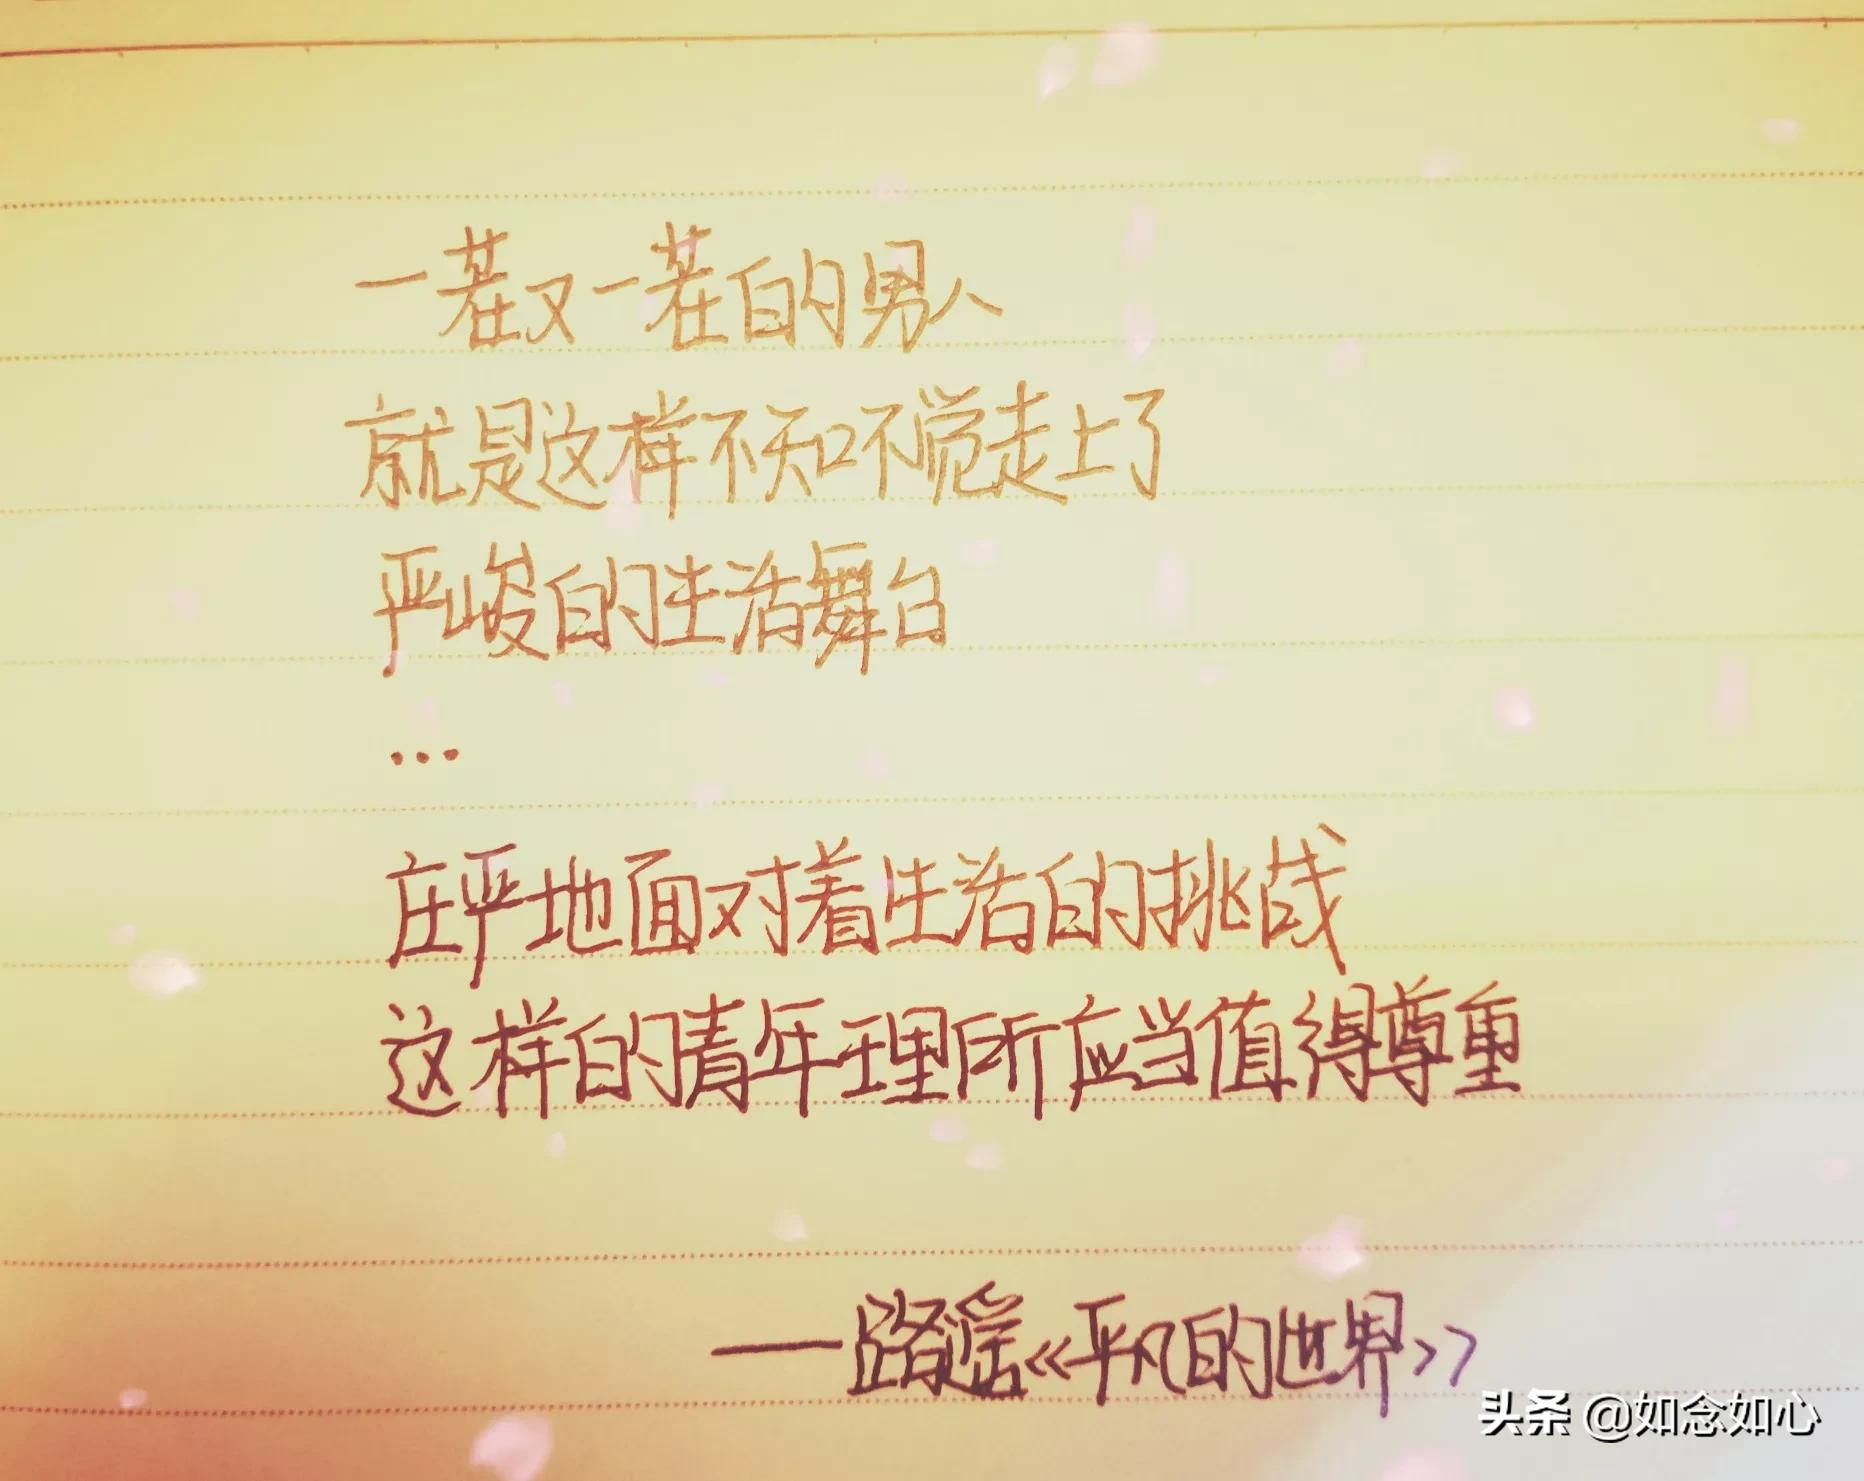 一茬又一茬的男人
就是这样不知不觉走上了
严峻的生活舞台
...
庄严地面对着生活的挑战
这样的青年理所应当值得尊重
——路遥《平凡的世界》
头条 @如念如心